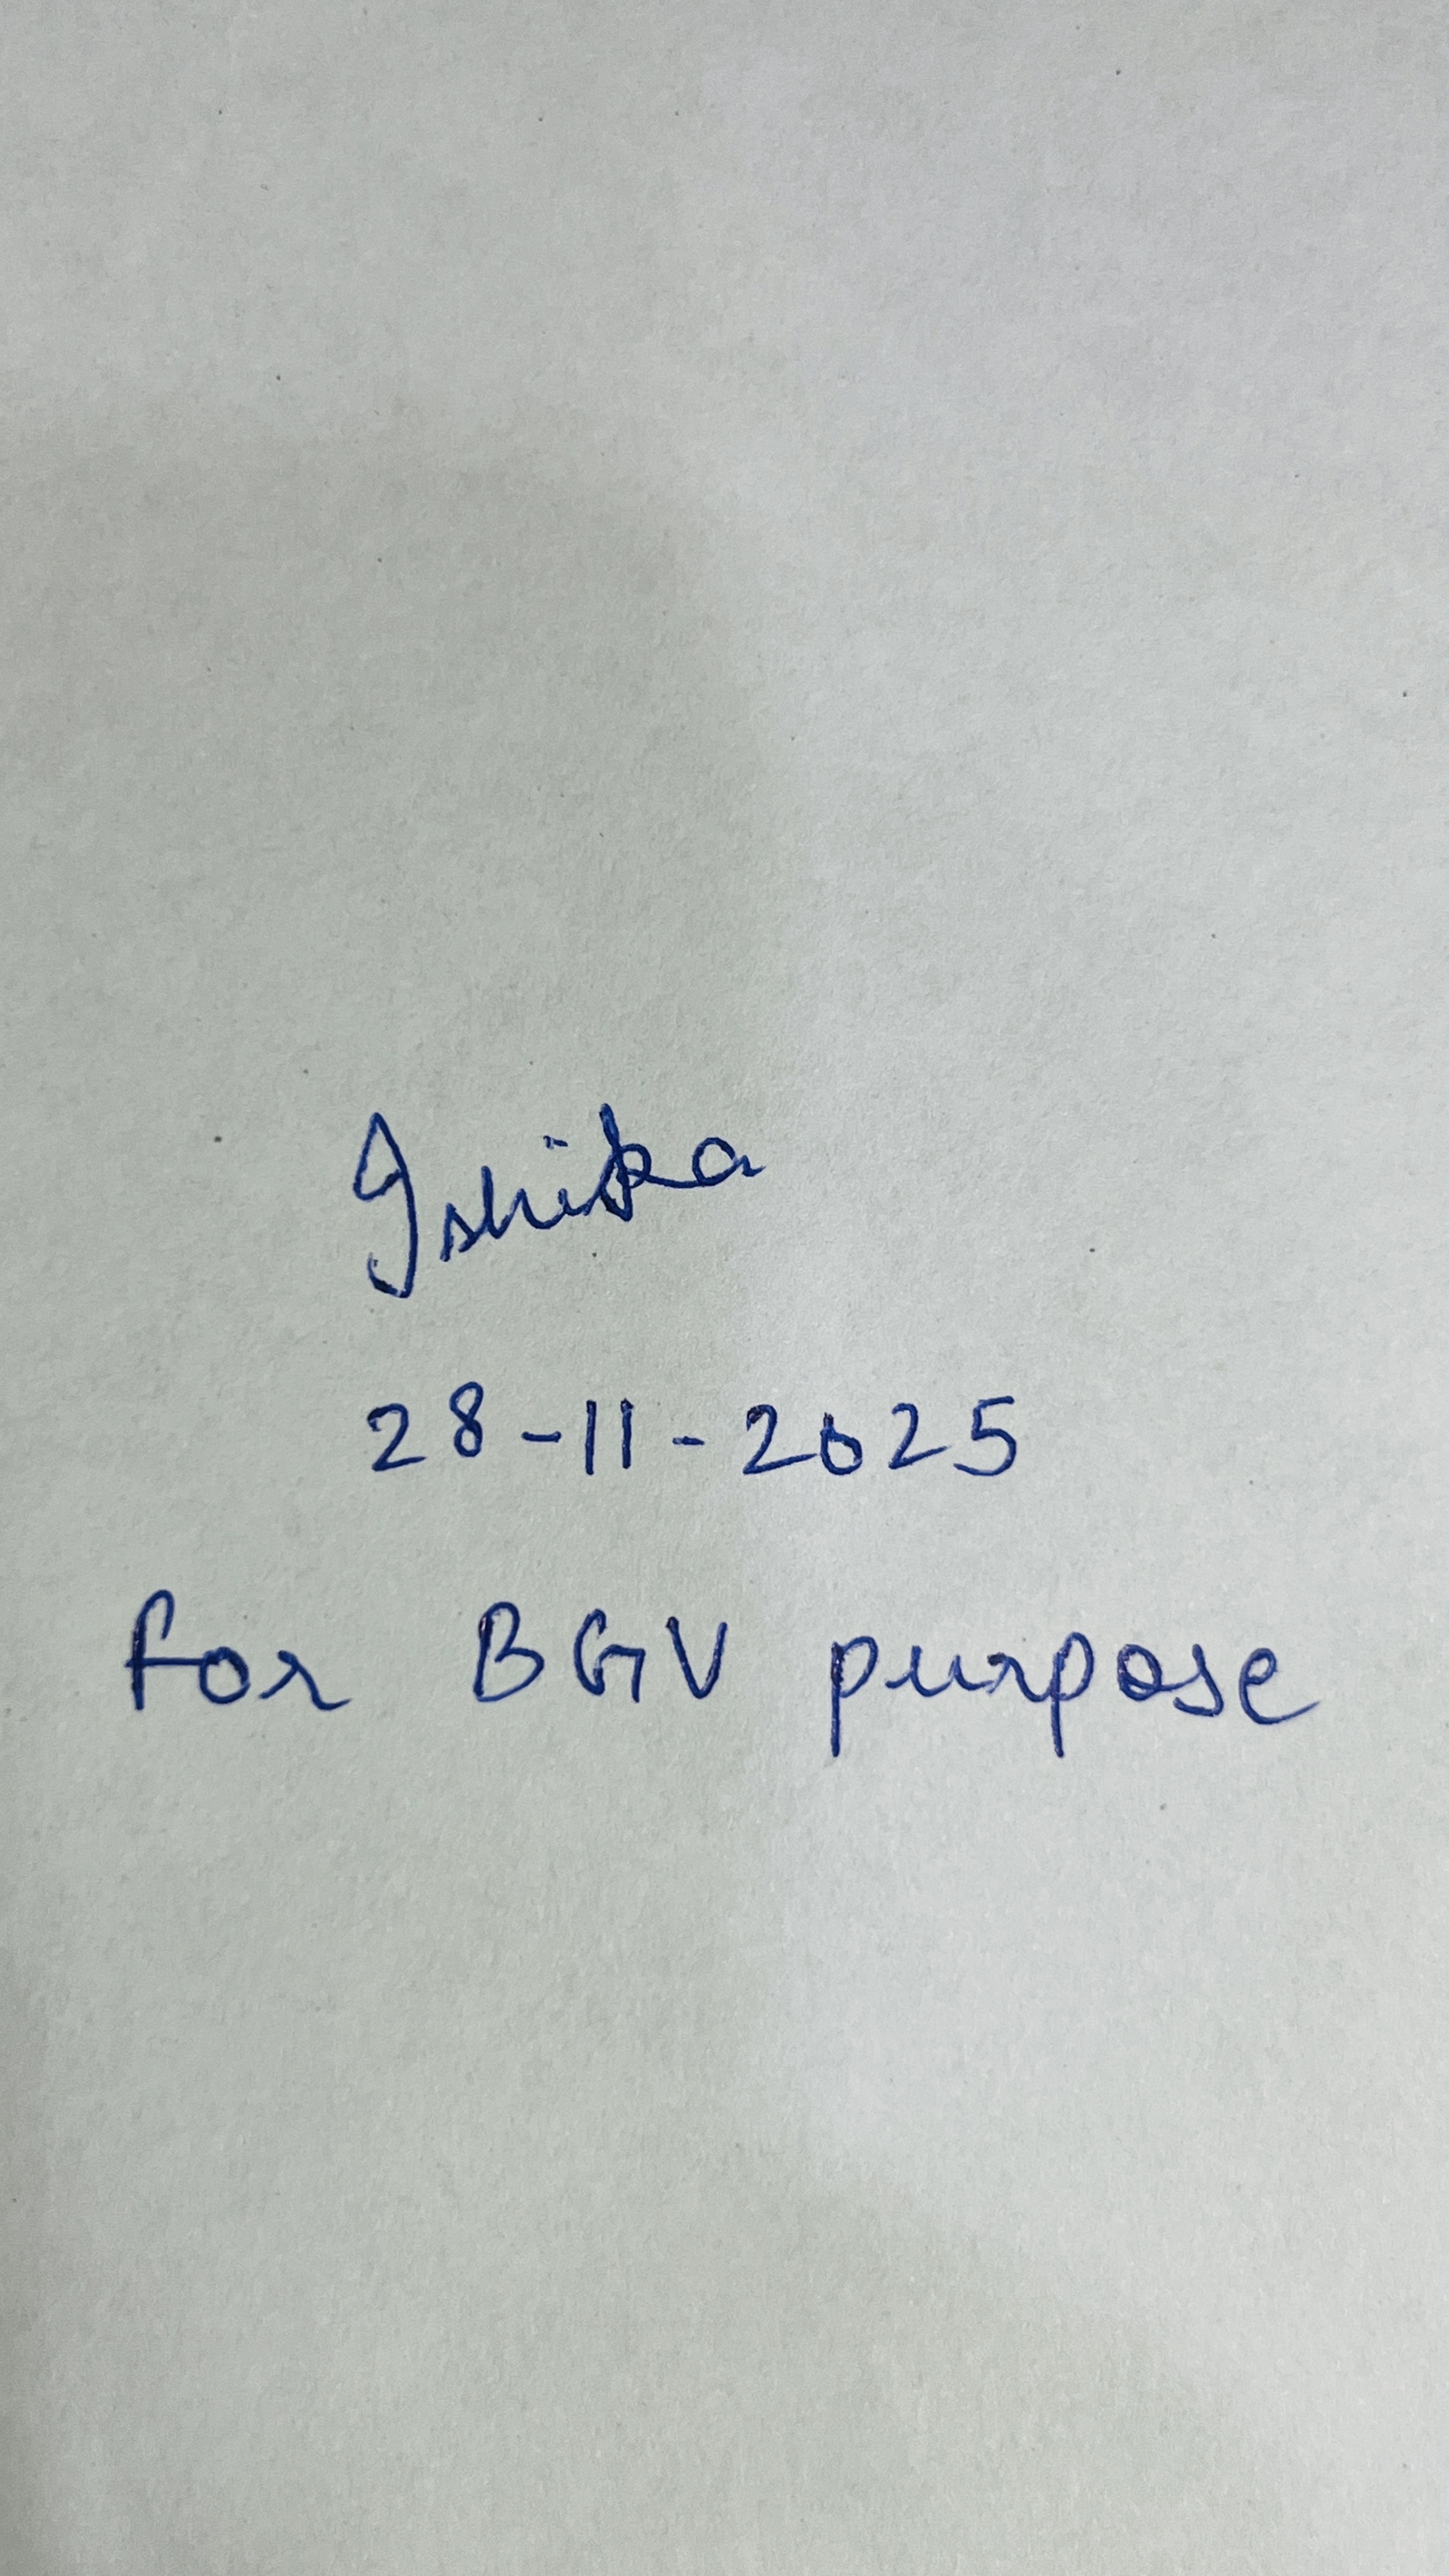 Ishika
28-11-2025
for BGV purpose